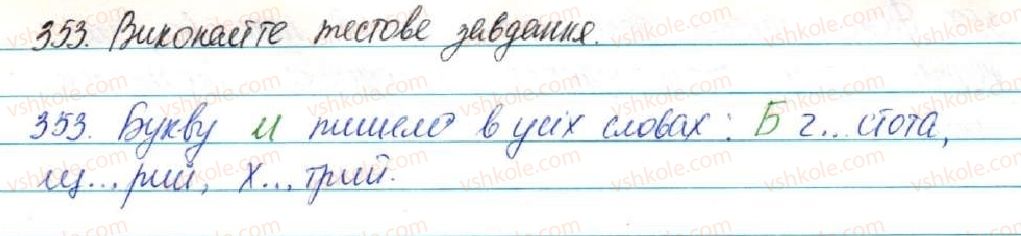 353. Виконайте тестове завдання.
353. Букву и пишемо в усіх словах: Б ч...стота,
щ...рий, х...трий.